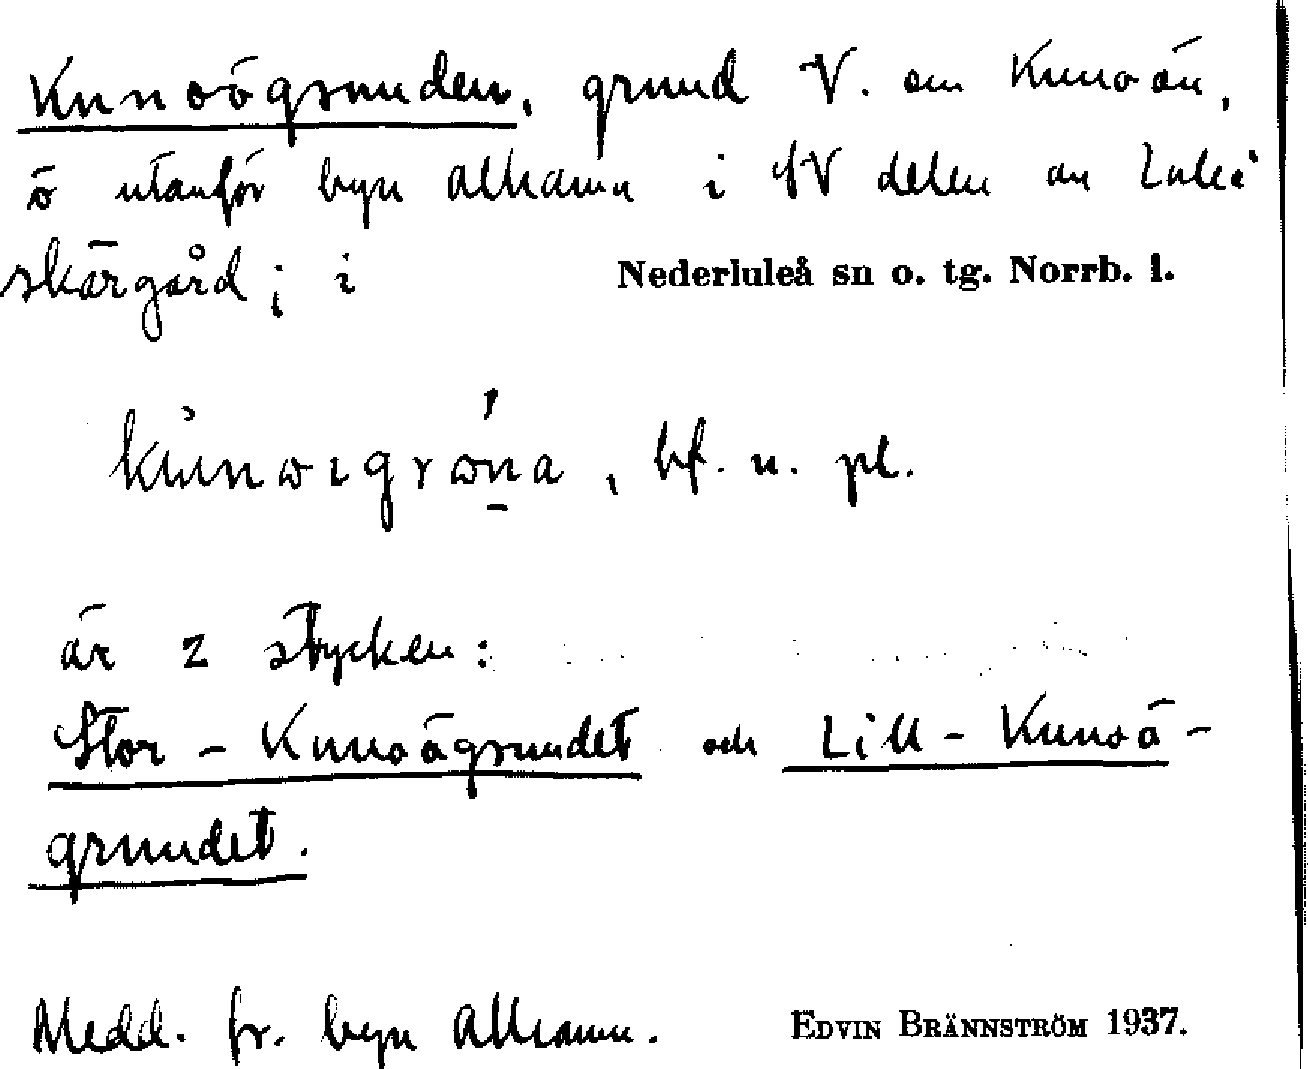 Kunoögrunden, grund V. om Kunoön,
ö utanför byn Alhamn i SV delen av Luleå
skärgård; i Nederluleå sn o. tg. Norrb. l.
bf. n. pl.
är 2 stycken:
Stor-Kunoögrundet och Lill-Kunoö-
grundet.
Medd. fr. byn Alhamn. EDVIN BRÄNNSTRÖM 1937.